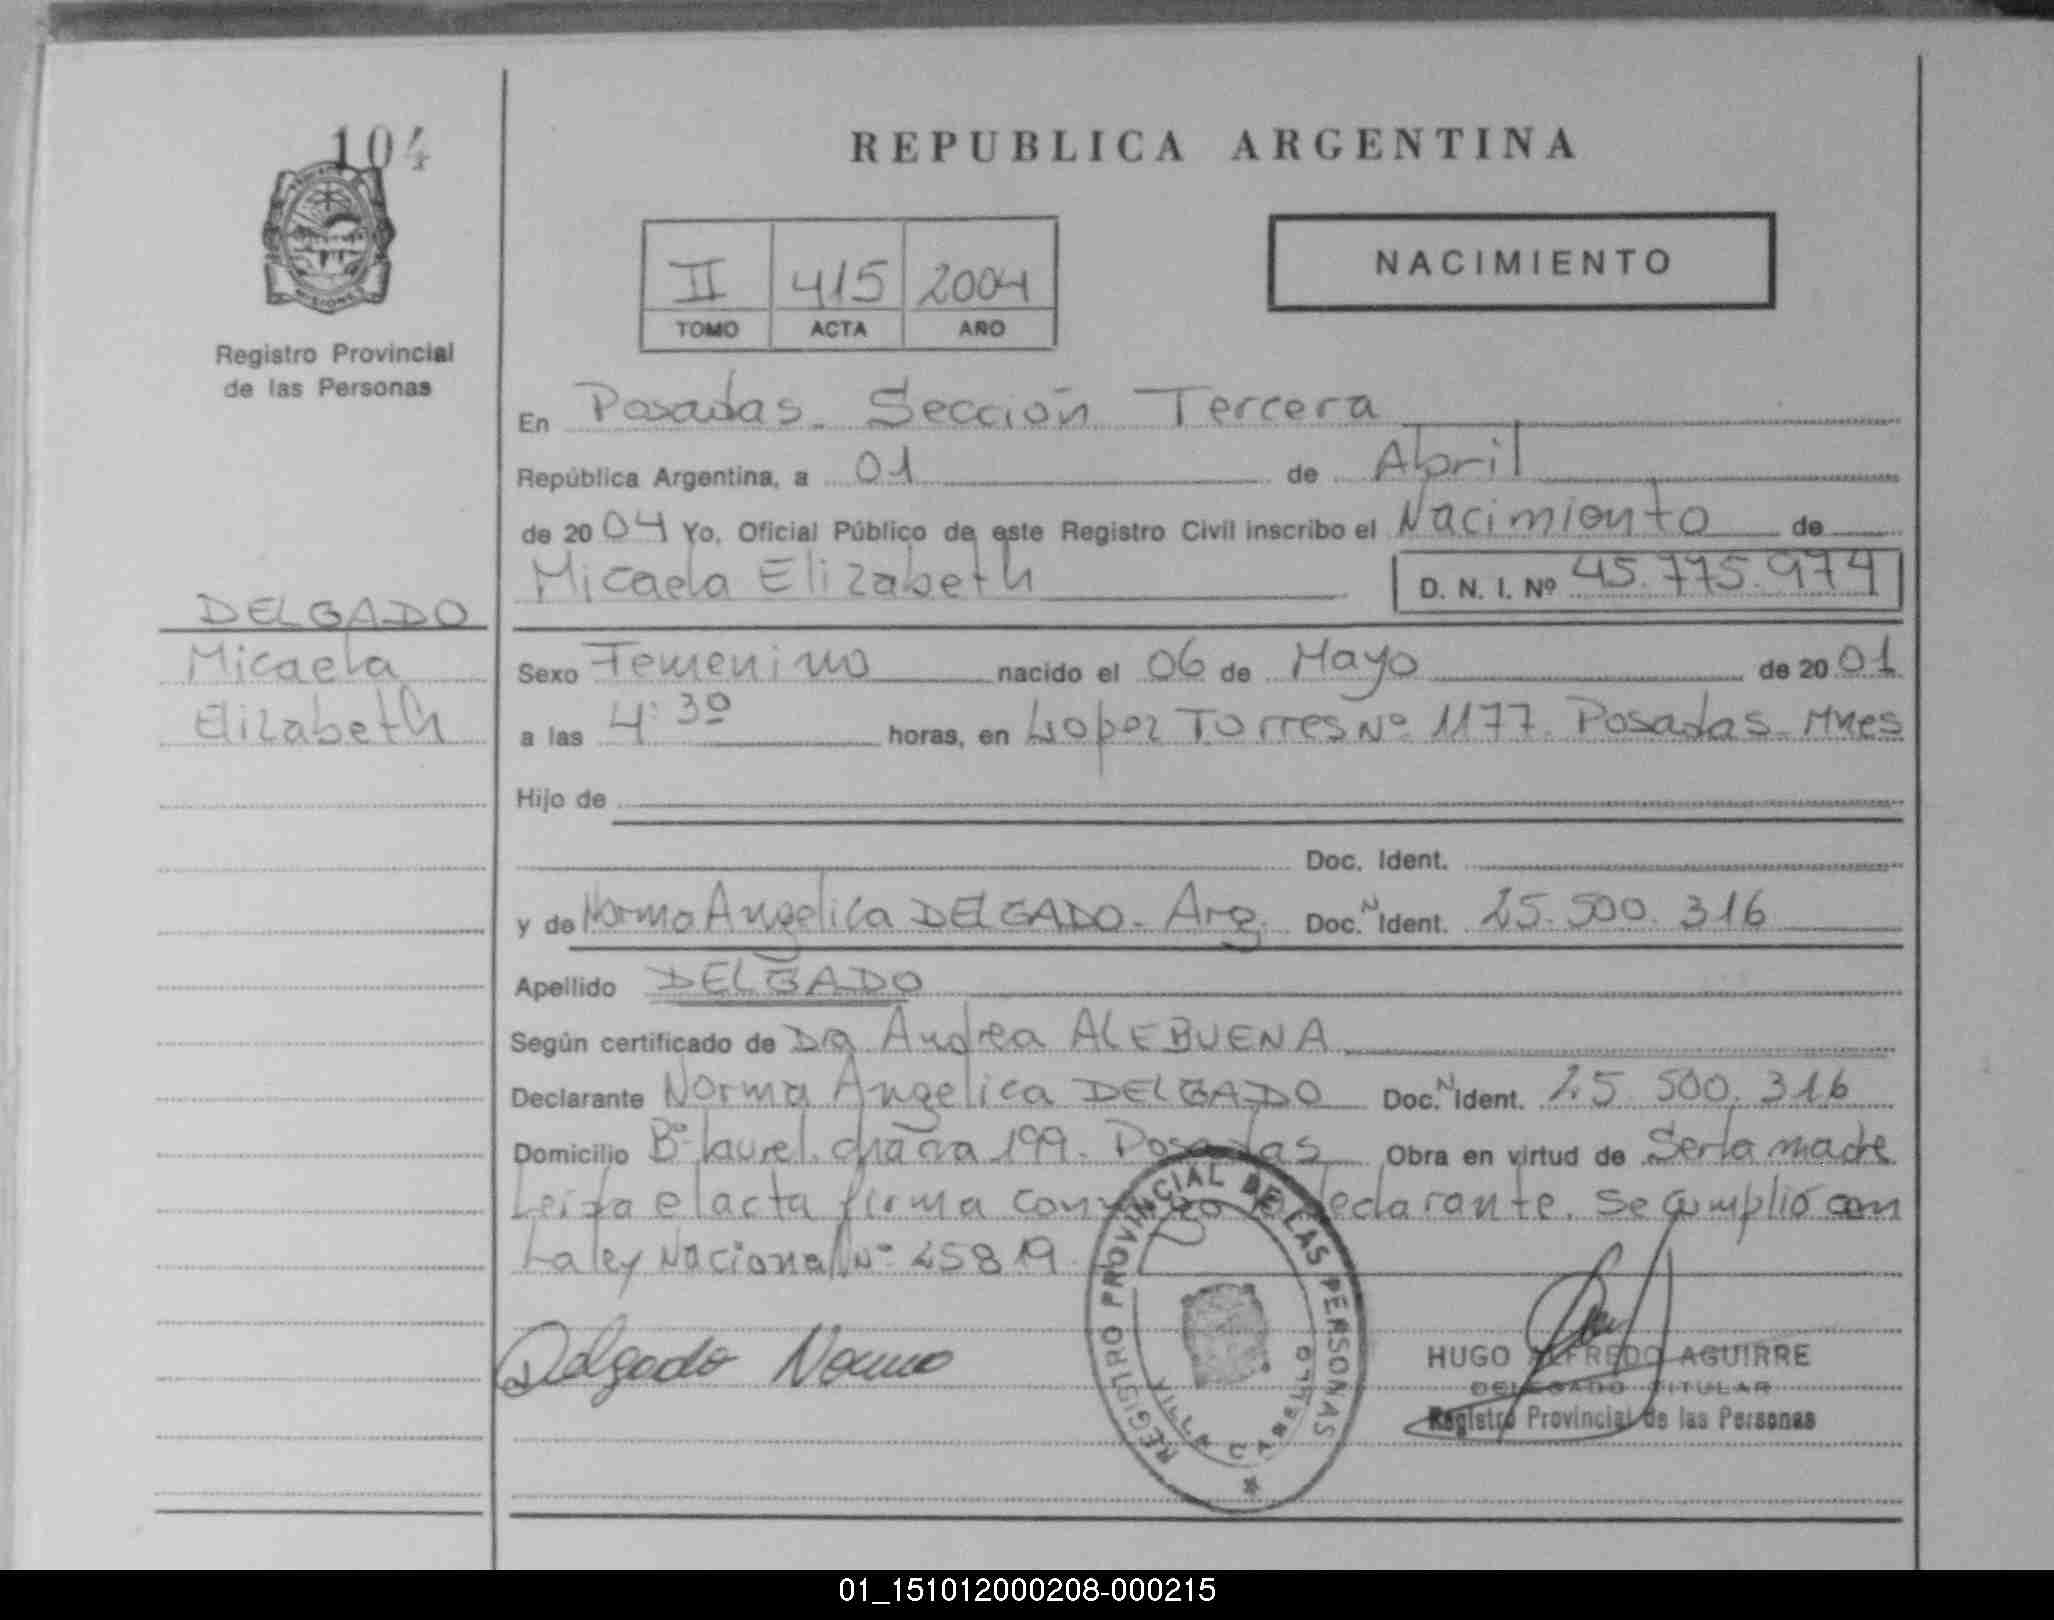 104
REPUBLICA ARGENTINA
II 415 2004
TOMO ACTA AÑO
NACIMIENTO
Registro Provincial
de las Personas
En Posadas. Sección Tercera
República Argentina, a 01 de Abril
de 2004 Yo, Oficial Público de este Registro Civil inscribo el Nacimiento de
Micaela Elizabeth D. N. I. Nº 45.775.974
DELGADO
Micaela
Elizabeth
Sexo Femenino nacido el 06 de Mayo de 2001
a las 4:30 horas, en Lopez Torres Nº 1177. Posadas. Mnes
Hijo de
Doc. Ident.
y de Norma Angelica DELGADO. Arg. Doc. N Ident. 25.500.316
Apellido DELGADO
Según certificado de Dra Andrea ALEBUENA
Declarante Norma Angelica DELGADO Doc. N Ident. 25.500.316
Domicilio Bº laurel. chacra 199. Posadas Obra en virtud de Ser la madre
Leida el acta firma conmigo la declarante. Se cumplió con
La ley Nacional Nº 25819
Delgado Norma
REGISTRO PROVINCIAL DE LAS PERSONAS
VILLA CABELLO
HUGO ALFREDO AGUIRRE
DELEGADO TITULAR
Registro Provincial de las Personas
01_151012000208-000215